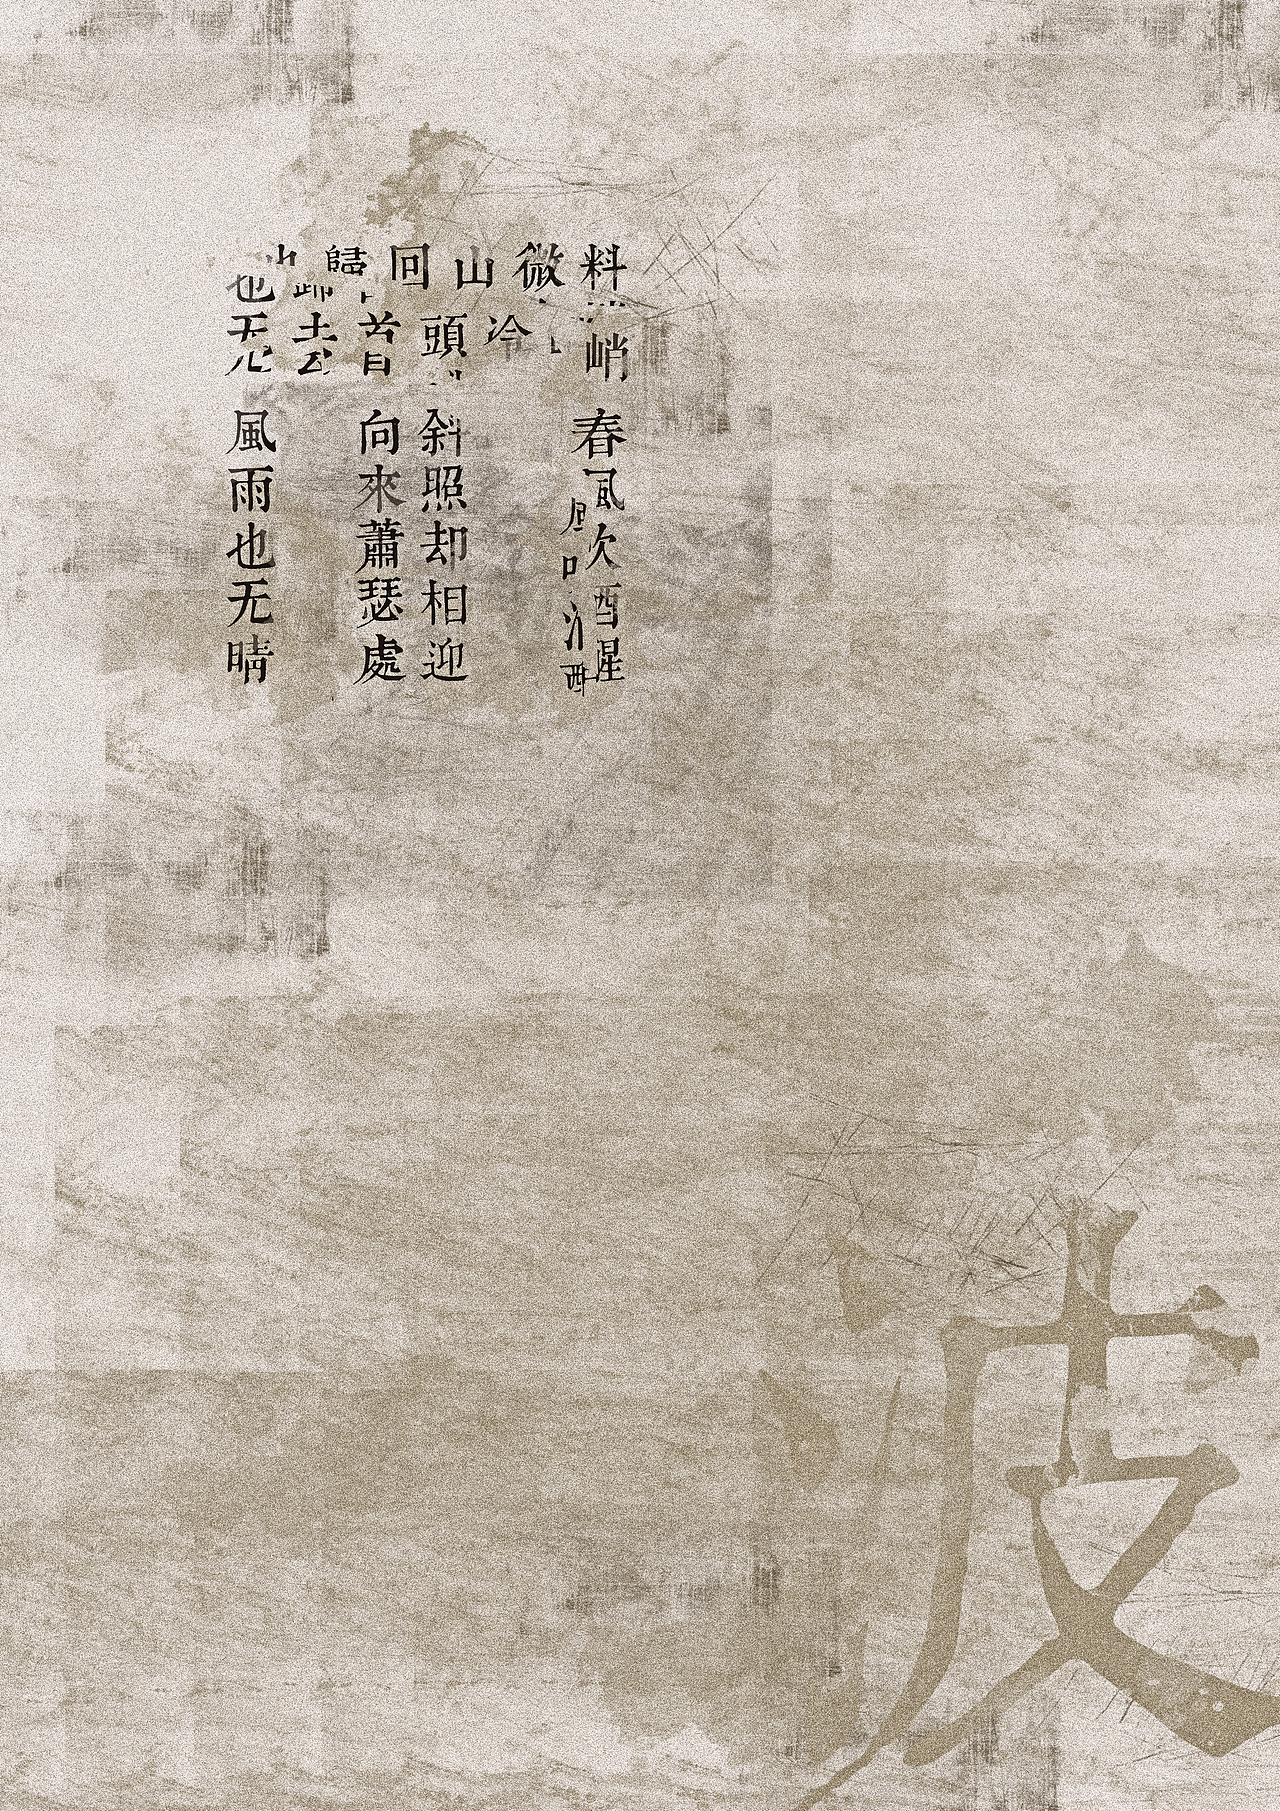 料峭春風吹酒醒
微冷
山頭斜照却相迎
回首向來蕭瑟處
歸去
也无風雨也无晴
波